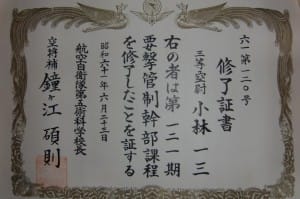 六一第一二〇号
修了証書
三等空尉 小林一三
右の者は第一二一期
要撃管制幹部課程
を修了したことを証する
昭和六十一年六月二十三日
航空自衛隊第五術科学校長
空将補 鐘ヶ江碩則